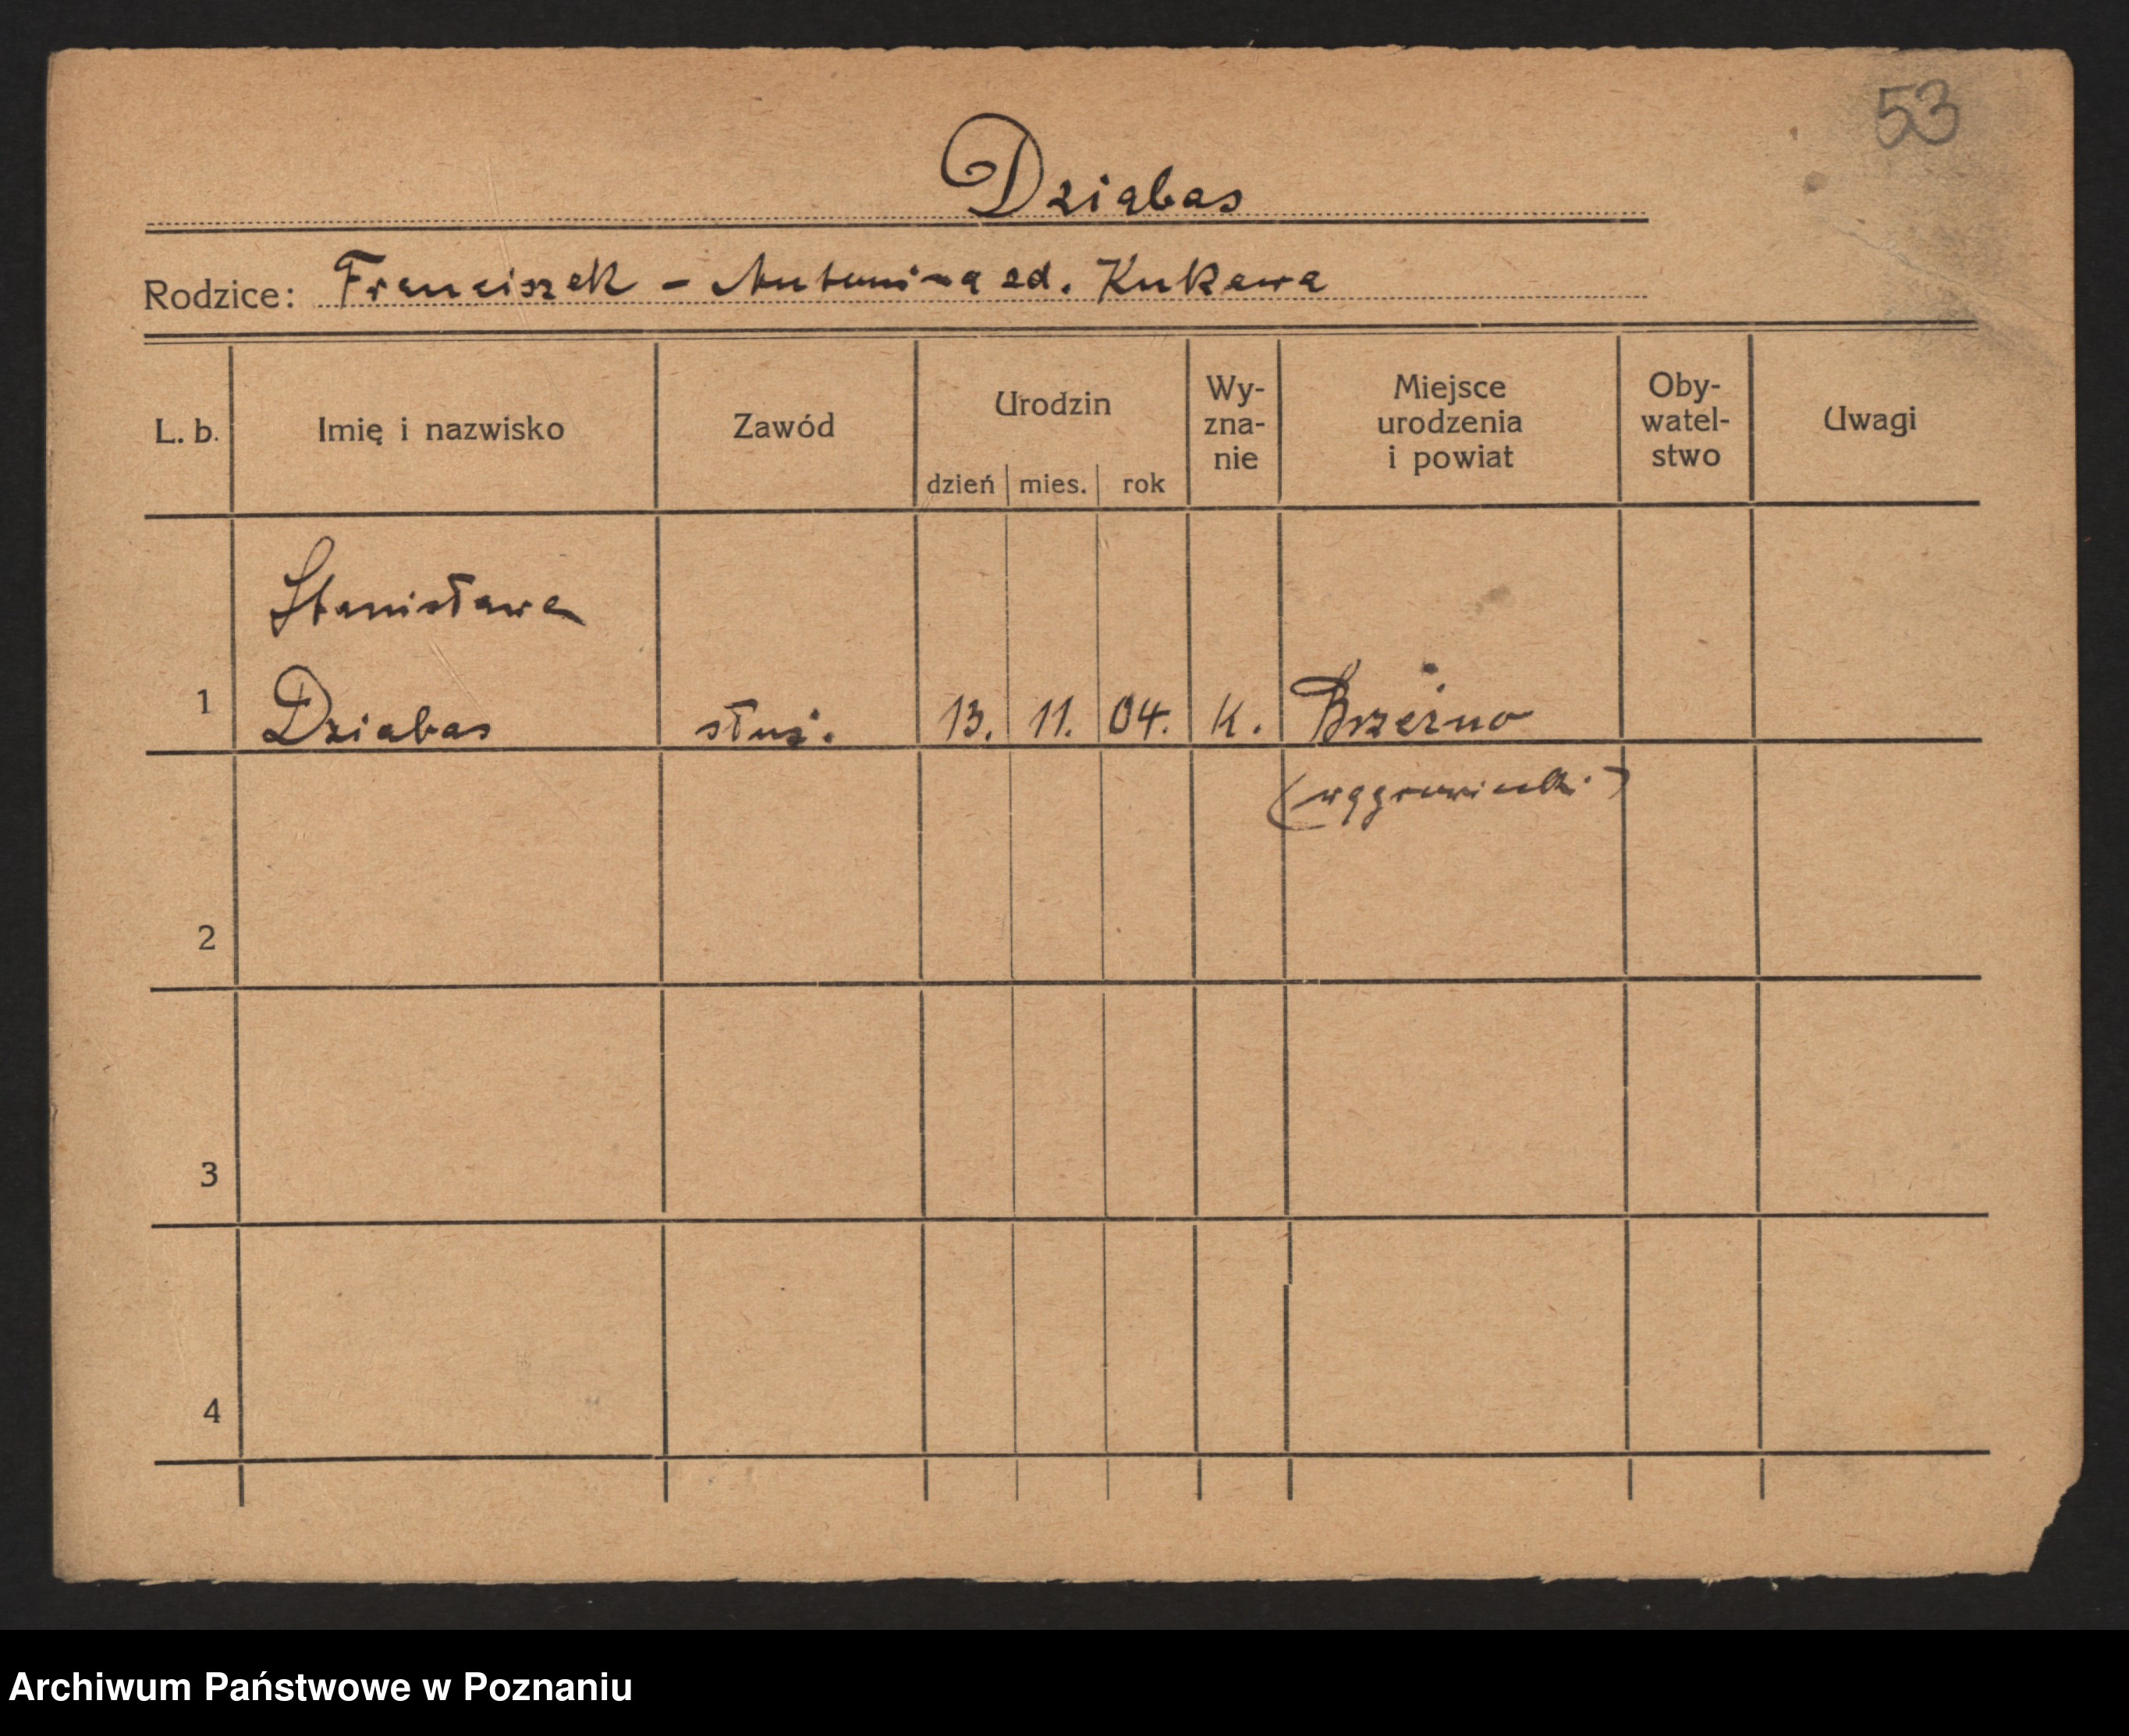 53
Dziabas
Rodzice: Franciszek - Antonina zd. Kukawa
L. b. Imię i nazwisko Zawód Urodzin dzień mies. rok Wy-zna-nie Miejsce urodzenia i powiat Oby-watel-stwo Uwagi
Stanisława
1 Dziabas służ. 13. 11. 04. K. Brzeźno
(wągrowiecki)
2
3
4
Archiwum Państwowe w Poznaniu